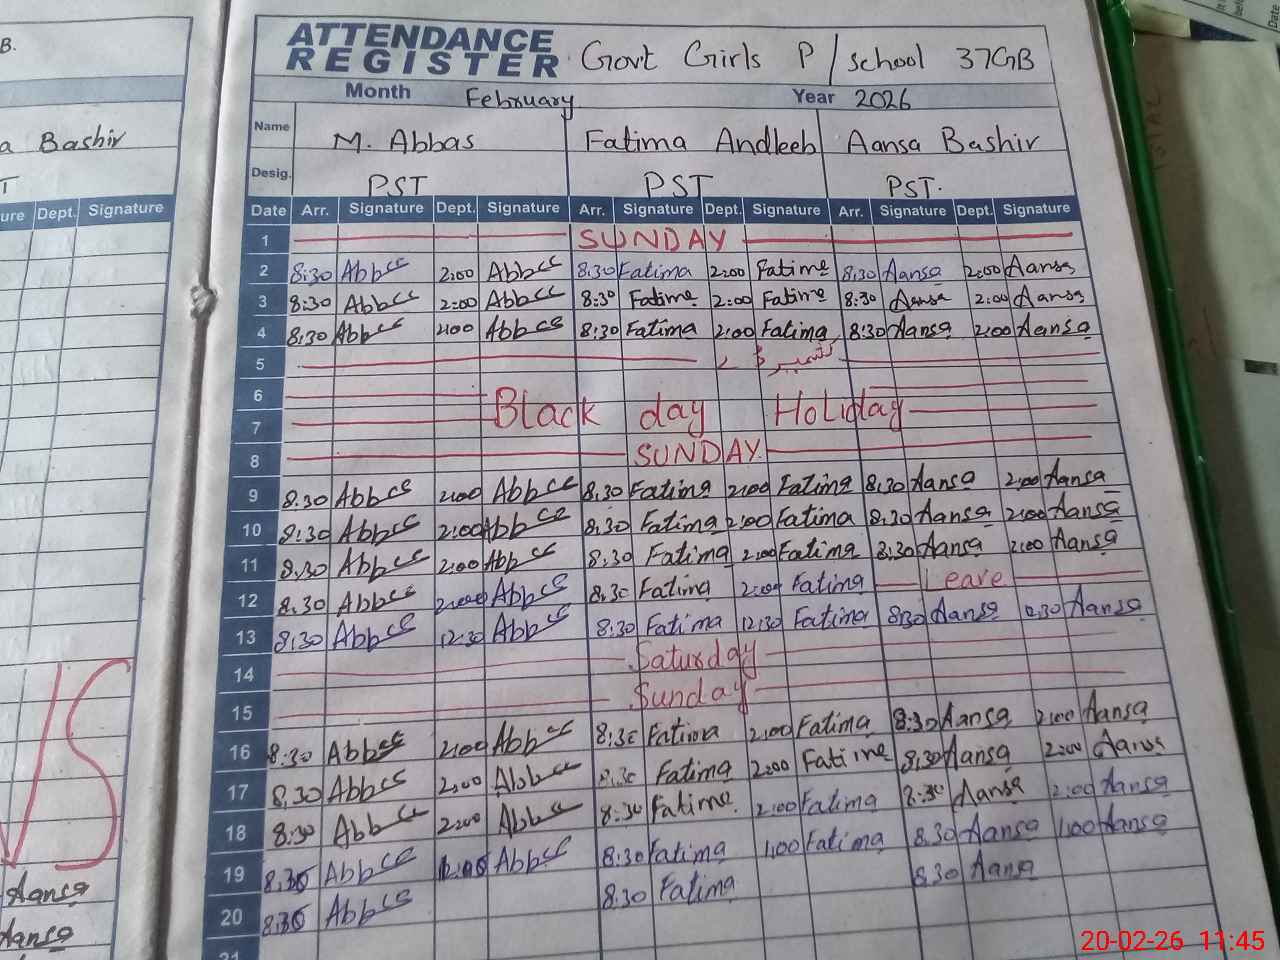 B.
a Bashir
T
ure Dept. Signature
Aansa
Aansa
ATTENDANCE REGISTER Govt Girls P/school 37GB
Month February Year 2026
Name M. Abbas Fatima Andleeb Aansa Bashir
Desig. PST PST PST.
Date Arr. Signature Dept. Signature Arr. Signature Dept. Signature Arr. Signature Dept. Signature
1 SUNDAY
2 8:30 Abbas 2:00 Abbas 8:30 Fatima 2:00 Fatima 8:30 Aansa 2:00 Aansa
3 8:30 Abbas 2:00 Abbas 8:30 Fatima 2:00 Fatima 8:30 Aansa 2:00 Aansa
4 8:30 Abbas 2:00 Abbas 8:30 Fatima 2:00 Fatima 8:30 Aansa 2:00 Aansa
5 کشمیر ڈے
6
7 Black day Holiday
8 SUNDAY
9 8:30 Abbas 2:00 Abbas 8:30 Fatima 2:00 Fatima 8:30 Aansa 2:00 Aansa
10 8:30 Abbas 2:00 Abbas 8:30 Fatima 2:00 Fatima 8:30 Aansa 2:00 Aansa
11 8:30 Abbas 2:00 Abbas 8:30 Fatima 2:00 Fatima 8:30 Aansa 2:00 Aansa
12 8:30 Abbas 2:00 Abbas 8:30 Fatima 2:00 Fatima Leave
13 8:30 Abbas 12:30 Abbas 8:30 Fatima 12:30 Fatima 8:30 Aansa 12:30 Aansa
14 Saturday
15 Sunday
16 8:30 Abbas 2:00 Abbas 8:30 Fatima 2:00 Fatima 8:30 Aansa 2:00 Aansa
17 8:30 Abbas 2:00 Abbas 8:30 Fatima 2:00 Fatima 8:30 Aansa 2:00 Aansa
18 8:30 Abbas 2:00 Abbas 8:30 Fatima 2:00 Fatima 8:30 Aansa 2:00 Aansa
19 8:30 Abbas Abbas 8:30 Fatima 1:00 Fatima 8:30 Aansa 1:00 Aansa
20 8:30 Abbas 8:30 Fatima 8:30 Aansa
21
20-02-26 11:45